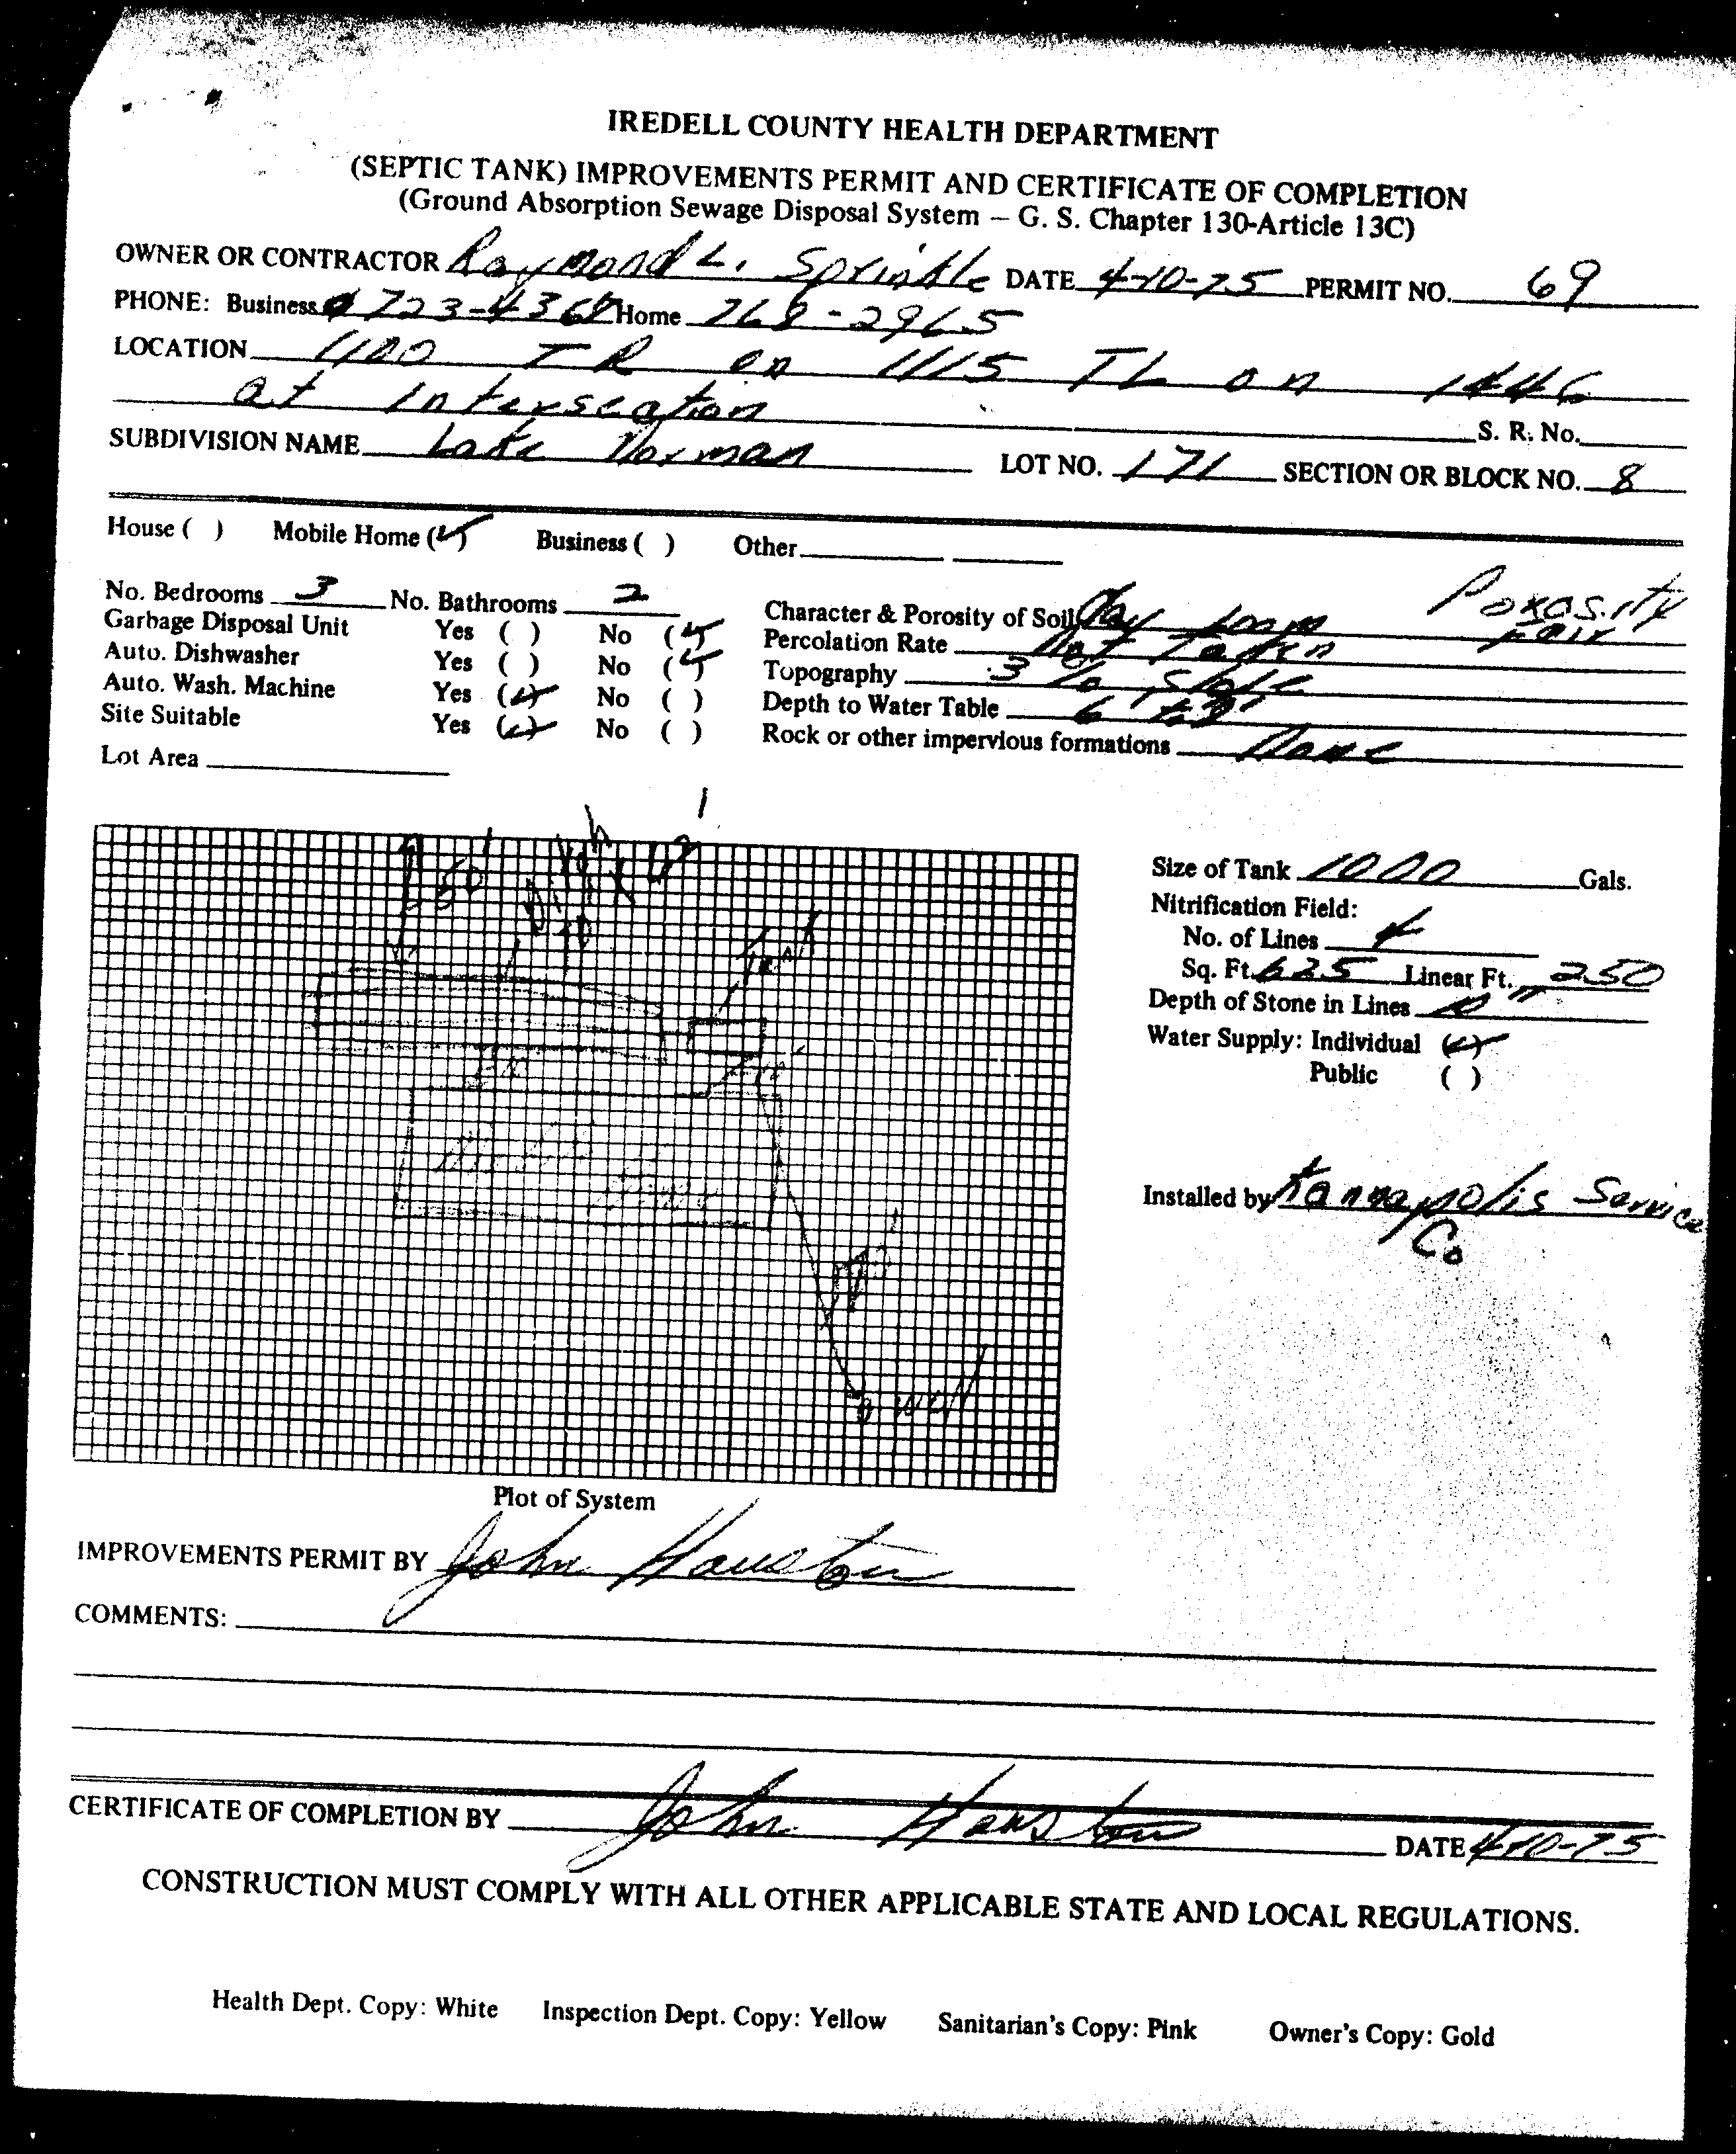 IREDELL COUNTY HEALTH DEPARTMENT
(SEPTIC TANK) IMPROVEMENTS PERMIT AND CERTIFICATE OF COMPLETION
(Ground Absorption Sewage Disposal System – G. S. Chapter 130-Article 13C)
OWNER OR CONTRACTOR Raymond L. Sprinkle DATE 4-10-75 PERMIT NO. 69
PHONE: Business 723-4364 Home 768-2965
LOCATION TR on 1115 TL on 1446
at Intersection S. R. No.
SUBDIVISION NAME Lake Norman LOT NO. 171 SECTION OR BLOCK NO. 8
House ( ) Mobile Home (✓) Business ( ) Other
No. Bedrooms 3 No. Bathrooms 2 Character & Porosity of Soil Clay Loam Porosity Fair
Garbage Disposal Unit Yes ( ) No (✓) Percolation Rate Not Taken
Auto. Dishwasher Yes ( ) No (✓) Topography 3 % slope
Auto. Wash. Machine Yes (✓) No ( ) Depth to Water Table 6'
Site Suitable Yes (✓) No ( ) Rock or other impervious formations None
Lot Area
50'
Tank
well
Size of Tank 1000 Gals.
Nitrification Field:
No. of Lines 4
Sq. Ft. 625 Linear Ft. 250
Depth of Stone in Lines
Water Supply: Individual (✓)
Public ( )
Installed by Kannapolis Service
Co
Plot of System
IMPROVEMENTS PERMIT BY John Hauston
COMMENTS:
CERTIFICATE OF COMPLETION BY John Hauston DATE 4-10-75
CONSTRUCTION MUST COMPLY WITH ALL OTHER APPLICABLE STATE AND LOCAL REGULATIONS.
Health Dept. Copy: White Inspection Dept. Copy: Yellow Sanitarian's Copy: Pink Owner's Copy: Gold